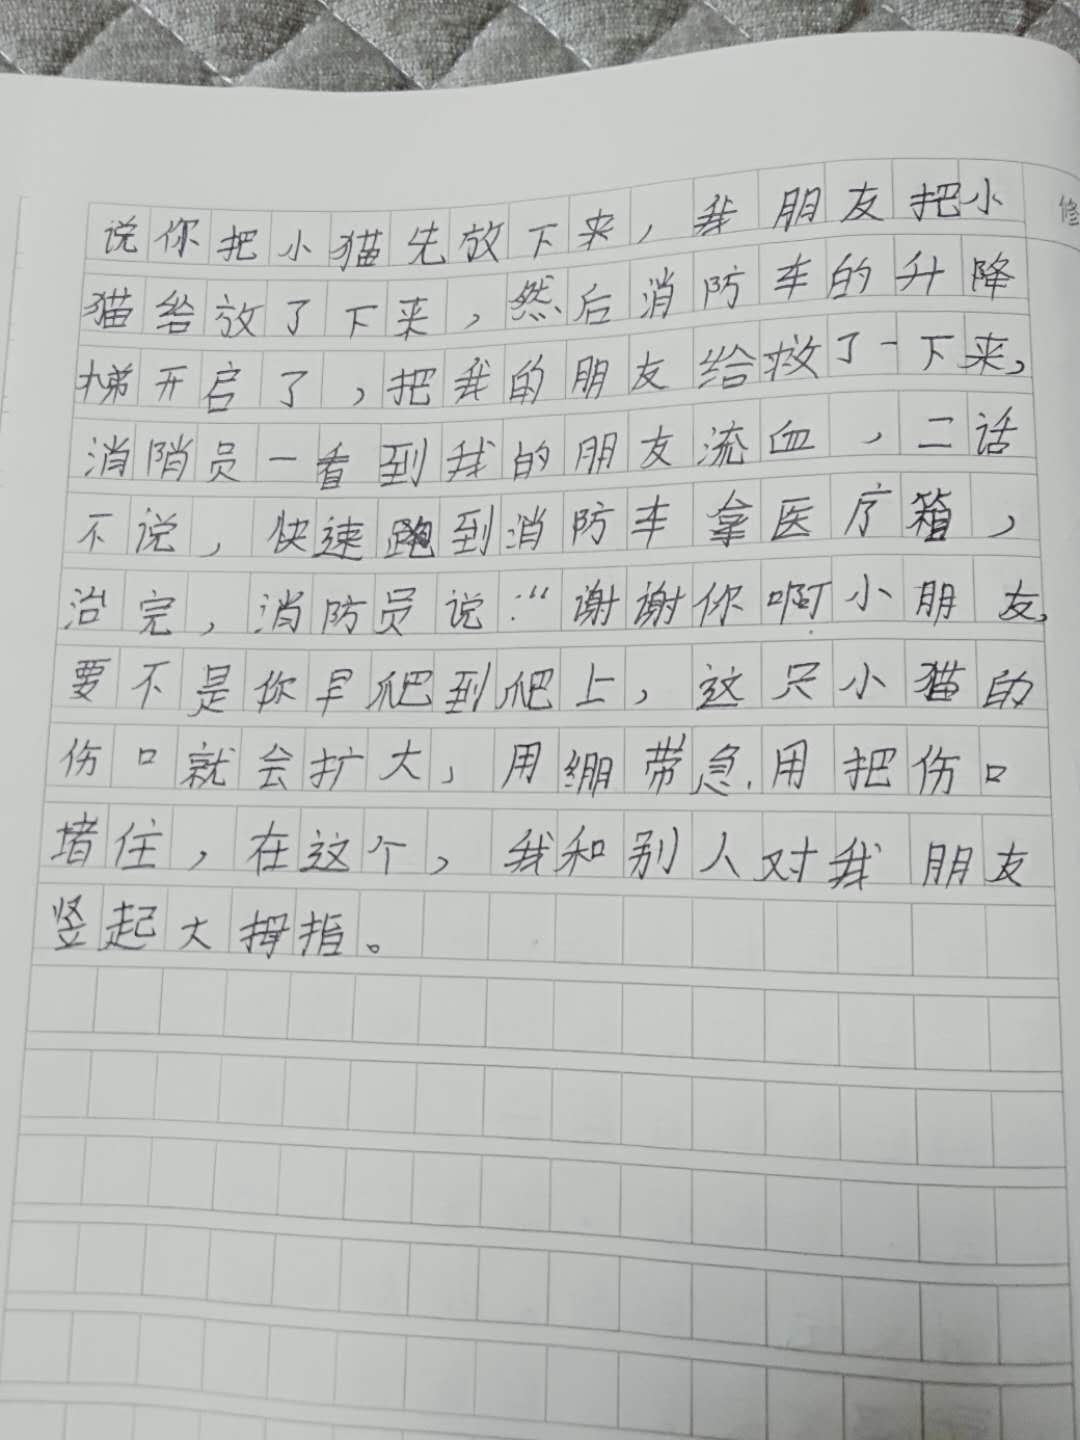 说你把小猫先放下来，我朋友把小
修
猫给放了下来，然后消防车的升降
梯开启了，把我的朋友给救了一下来，
消防员一看到我的朋友流血，二话
不说，快速跑到消防车拿医疗箱，
治完，消防员说：“谢谢你啊小朋友，
要不是你早爬到爬上，这只小猫的
伤口就会扩大，用绷带急.用把伤口
堵住，在这个，我和别人对我朋友
竖起大拇指。